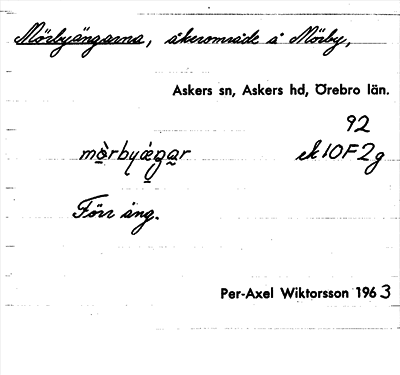 Mörbyängarna, åkerområde å Mörby,
Askers sn, Askers hd, Örebro län.
92
mö̀rbyáŋar ek 10F2g
Förr äng.
Per-Axel Wiktorsson 1963